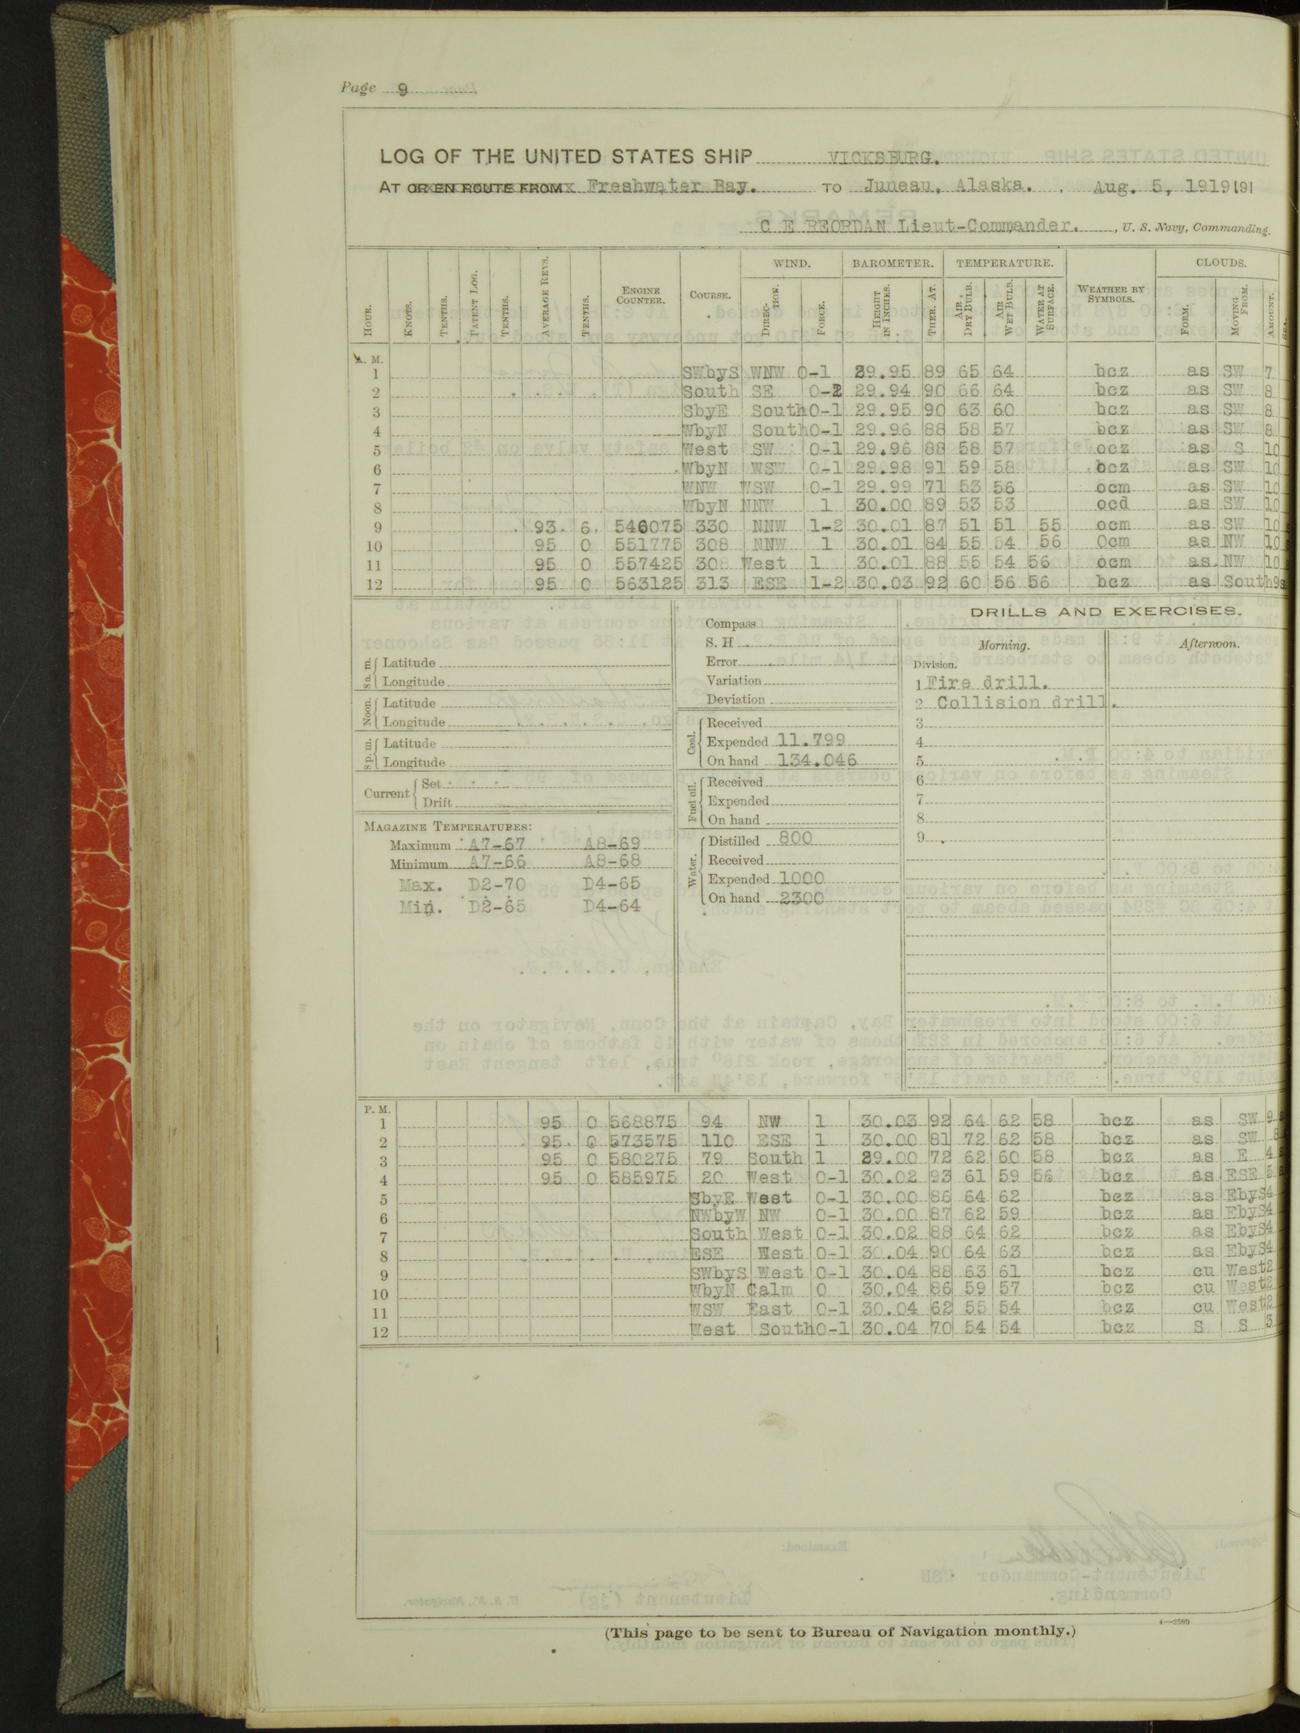 Page 9
LOG OF THE UNITED STATES SHIP VICKSBURG.
AT OR EN ROUTE FROM Freshwater Bay. TO Juneau, Alaska. , Aug. 5, 1919 191
C E REORDAN Lieut-Commander. , U. S. Navy, Commanding.
WIND. BAROMETER. TEMPERATURE. CLOUDS.
HOUR. KNOTS. TENTHS. PATENT LOG. TENTHS. AVERAGE REVS. TENTHS. ENGINE COUNTER. COURSE. DIRECTION. FORCE. HEIGHT IN INCHES. THER. AT. AIR, DRY BULB. AIR WET BULB. WATER AT SURFACE. WEATHER BY SYMBOLS. FORM. MOVING FROM. AMOUNT.
A. M.
1 SWbyS WNW 0-1 29.95 89 65 64 bcz as SW 7
2 South SE 0-2 29.94 90 66 64 bcz as SW 8
3 SbyE South 0-1 29.95 90 63 60 bcz as SW 8
4 WbyN South 0-1 29.96 88 58 57 bcz as SW 8
5 West SW 0-1 29.96 88 58 57 ocz as S 10
6 WbyN WSW 0-1 29.98 91 59 58 bcz as SW 10
7 WNW WSW 0-1 29.99 71 53 56 ocm as SW 10
8 WbyN NNW 1 30.00 89 53 53 ocd as SW 10
9 93 6 546075 330 NNW 1-2 30.01 87 51 51 55 ocm as SW 10
10 95 0 551775 308 NNW 1 30.01 84 55 54 56 Ocm as NW 10
11 95 0 557425 308 West 1 30.01 88 55 54 56 ocm as NW 10
12 95 0 563125 313 ESE 1-2 30.03 92 60 56 56 bcz as South 9
DRILLS AND EXERCISES.
Morning. Afternoon.
Division.
1 Fire drill.
2 Collision drill.
3
4
5
6
7
8
9
8 a. m. Latitude
Longitude
Noon. Latitude
Longitude
8 p. m. Latitude
Longitude
Current Set
Drift
MAGAZINE TEMPERATURES:
Maximum A7-67 A8-69
Minimum A7-66 A8-68
Max. D2-70 D4-65
Min. D2-65 D4-64
Compass
S. H
Error
Variation
Deviation
Coal. Received
Expended 11.799
On hand 134.046
Fuel oil. Received
Expended
On hand
Water. Distilled 800
Received
Expended 1000
On hand 2300
P. M.
1 95 0 568875 94 NW 1 30.03 92 64 62 58 bcz as SW 9
2 95 0 573575 110 ESE 1 30.00 81 72 62 58 bcz as SW 8
3 95 0 580275 79 South 1 29.00 72 62 60 58 bcz as E 4
4 95 0 585975 20 West 0-1 30.02 93 61 59 56 bcz as ESE 5
5 SbyE West 0-1 30.00 86 64 62 bcz as EbyS 4
6 NWbyW NW 0-1 30.00 87 62 59 bcz as EbyS 4
7 South West 0-1 30.02 88 64 62 bcz as EbyS 4
8 ESE West 0-1 30.04 90 64 63 bcz as EbyS 4
9 SWbyS West 0-1 30.04 88 63 61 bcz cu West 2
10 WbyN Calm 0 30.04 86 59 57 bcz cu West 2
11 WSW East 0-1 30.04 62 55 54 bcz cu West 2
12 West South 0-1 30.04 70 54 54 bcz S S 3
(This page to be sent to Bureau of Navigation monthly.)